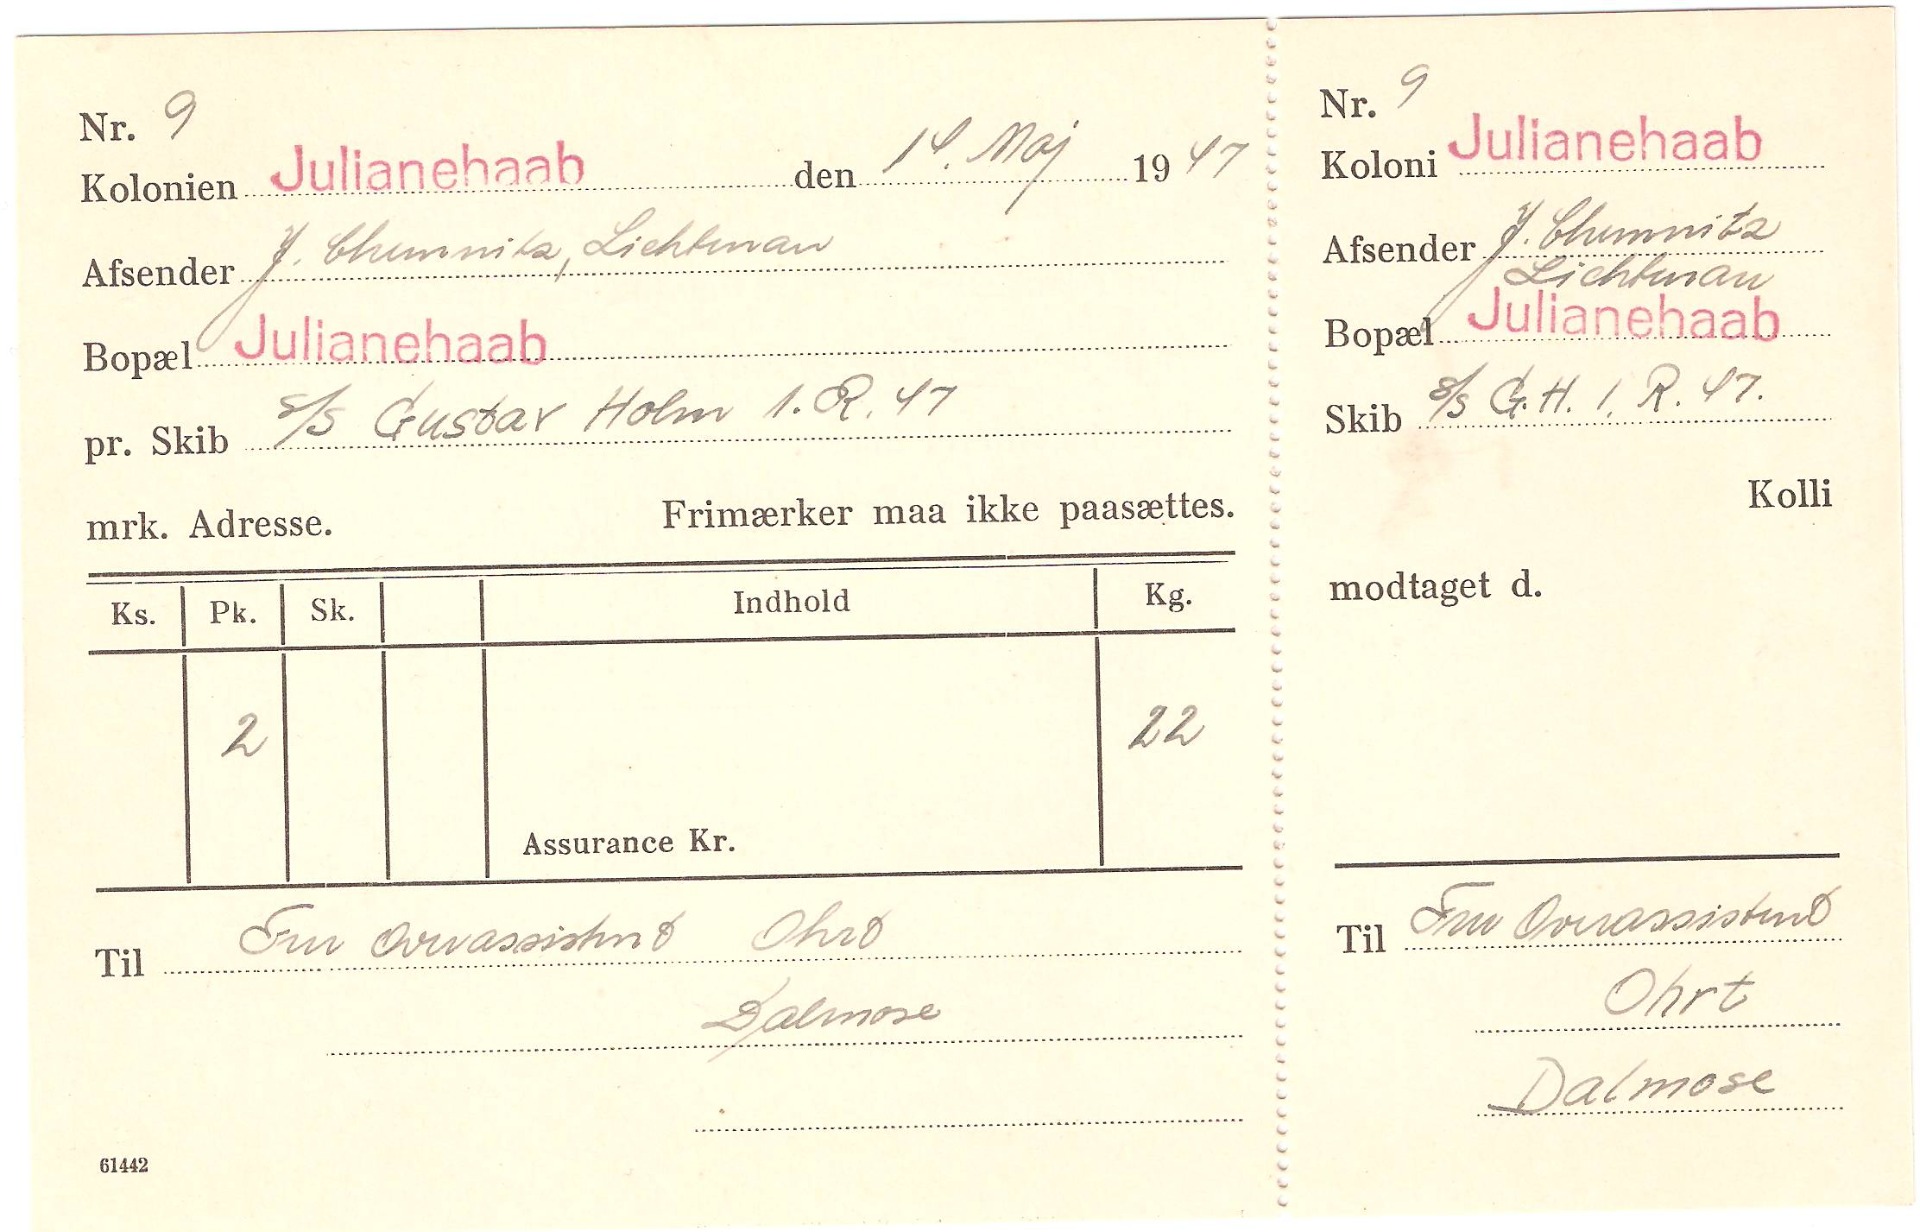 Nr. 9
Kolonien Julianehaab den 14. Maj 1947
Afsender J. Chemnitz, Lichtenau
Bopæl Julianehaab
pr. Skib s/s Gustav Holm 1. R. 47
mrk. Adresse. Frimærker maa ikke paasættes.
Ks. Pk. Sk. Indhold Kg.
2 22
Assurance Kr.
Til Fru Overassistent Ohrt
Dalmose
61442
Nr. 9
Koloni Julianehaab
Afsender J. Chemnitz
Lichtenau
Bopæl Julianehaab
Skib s/s G.H. 1. R. 47.
Kolli
modtaget d.
Til Fru Overassistent
Ohrt
Dalmose